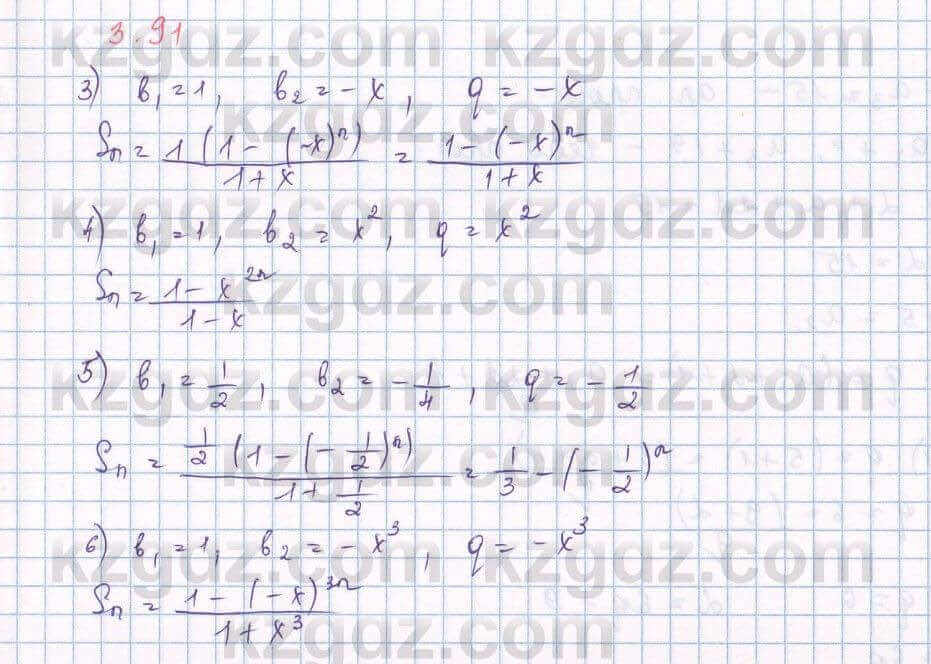 3.91
3) b₁ = 1, b₂ = -x, q = -x
Sₙ = 1(1 - (-x)ⁿ) / 1 + x = 1 - (-x)ⁿ / 1 + x
4) b₁ = 1, b₂ = x², q = x²
Sₙ = 1 - x²ⁿ / 1 - x
5) b₁ = 1/2, b₂ = -1/4, q = -1/2
Sₙ = 1/2 (1 - (-1/2)ⁿ) / 1 + 1/2 = 1/3 - (-1/2)ⁿ
6) b₁ = 1, b₂ = -x³, q = -x³
Sₙ = 1 - (-x)³ⁿ / 1 + x³
kzgdz.com
kzgdz.com
kzgdz.com
kzgdz.com
kzgdz.com
kzgdz.com
kzgdz.com
kzgdz.com